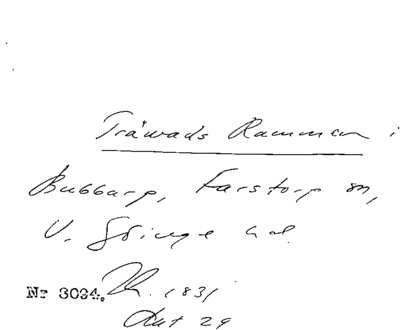 Träwads Ramman i
Bubbarp, Farstorp sn,
V. Göinge hd.
Nr 3094. 1831